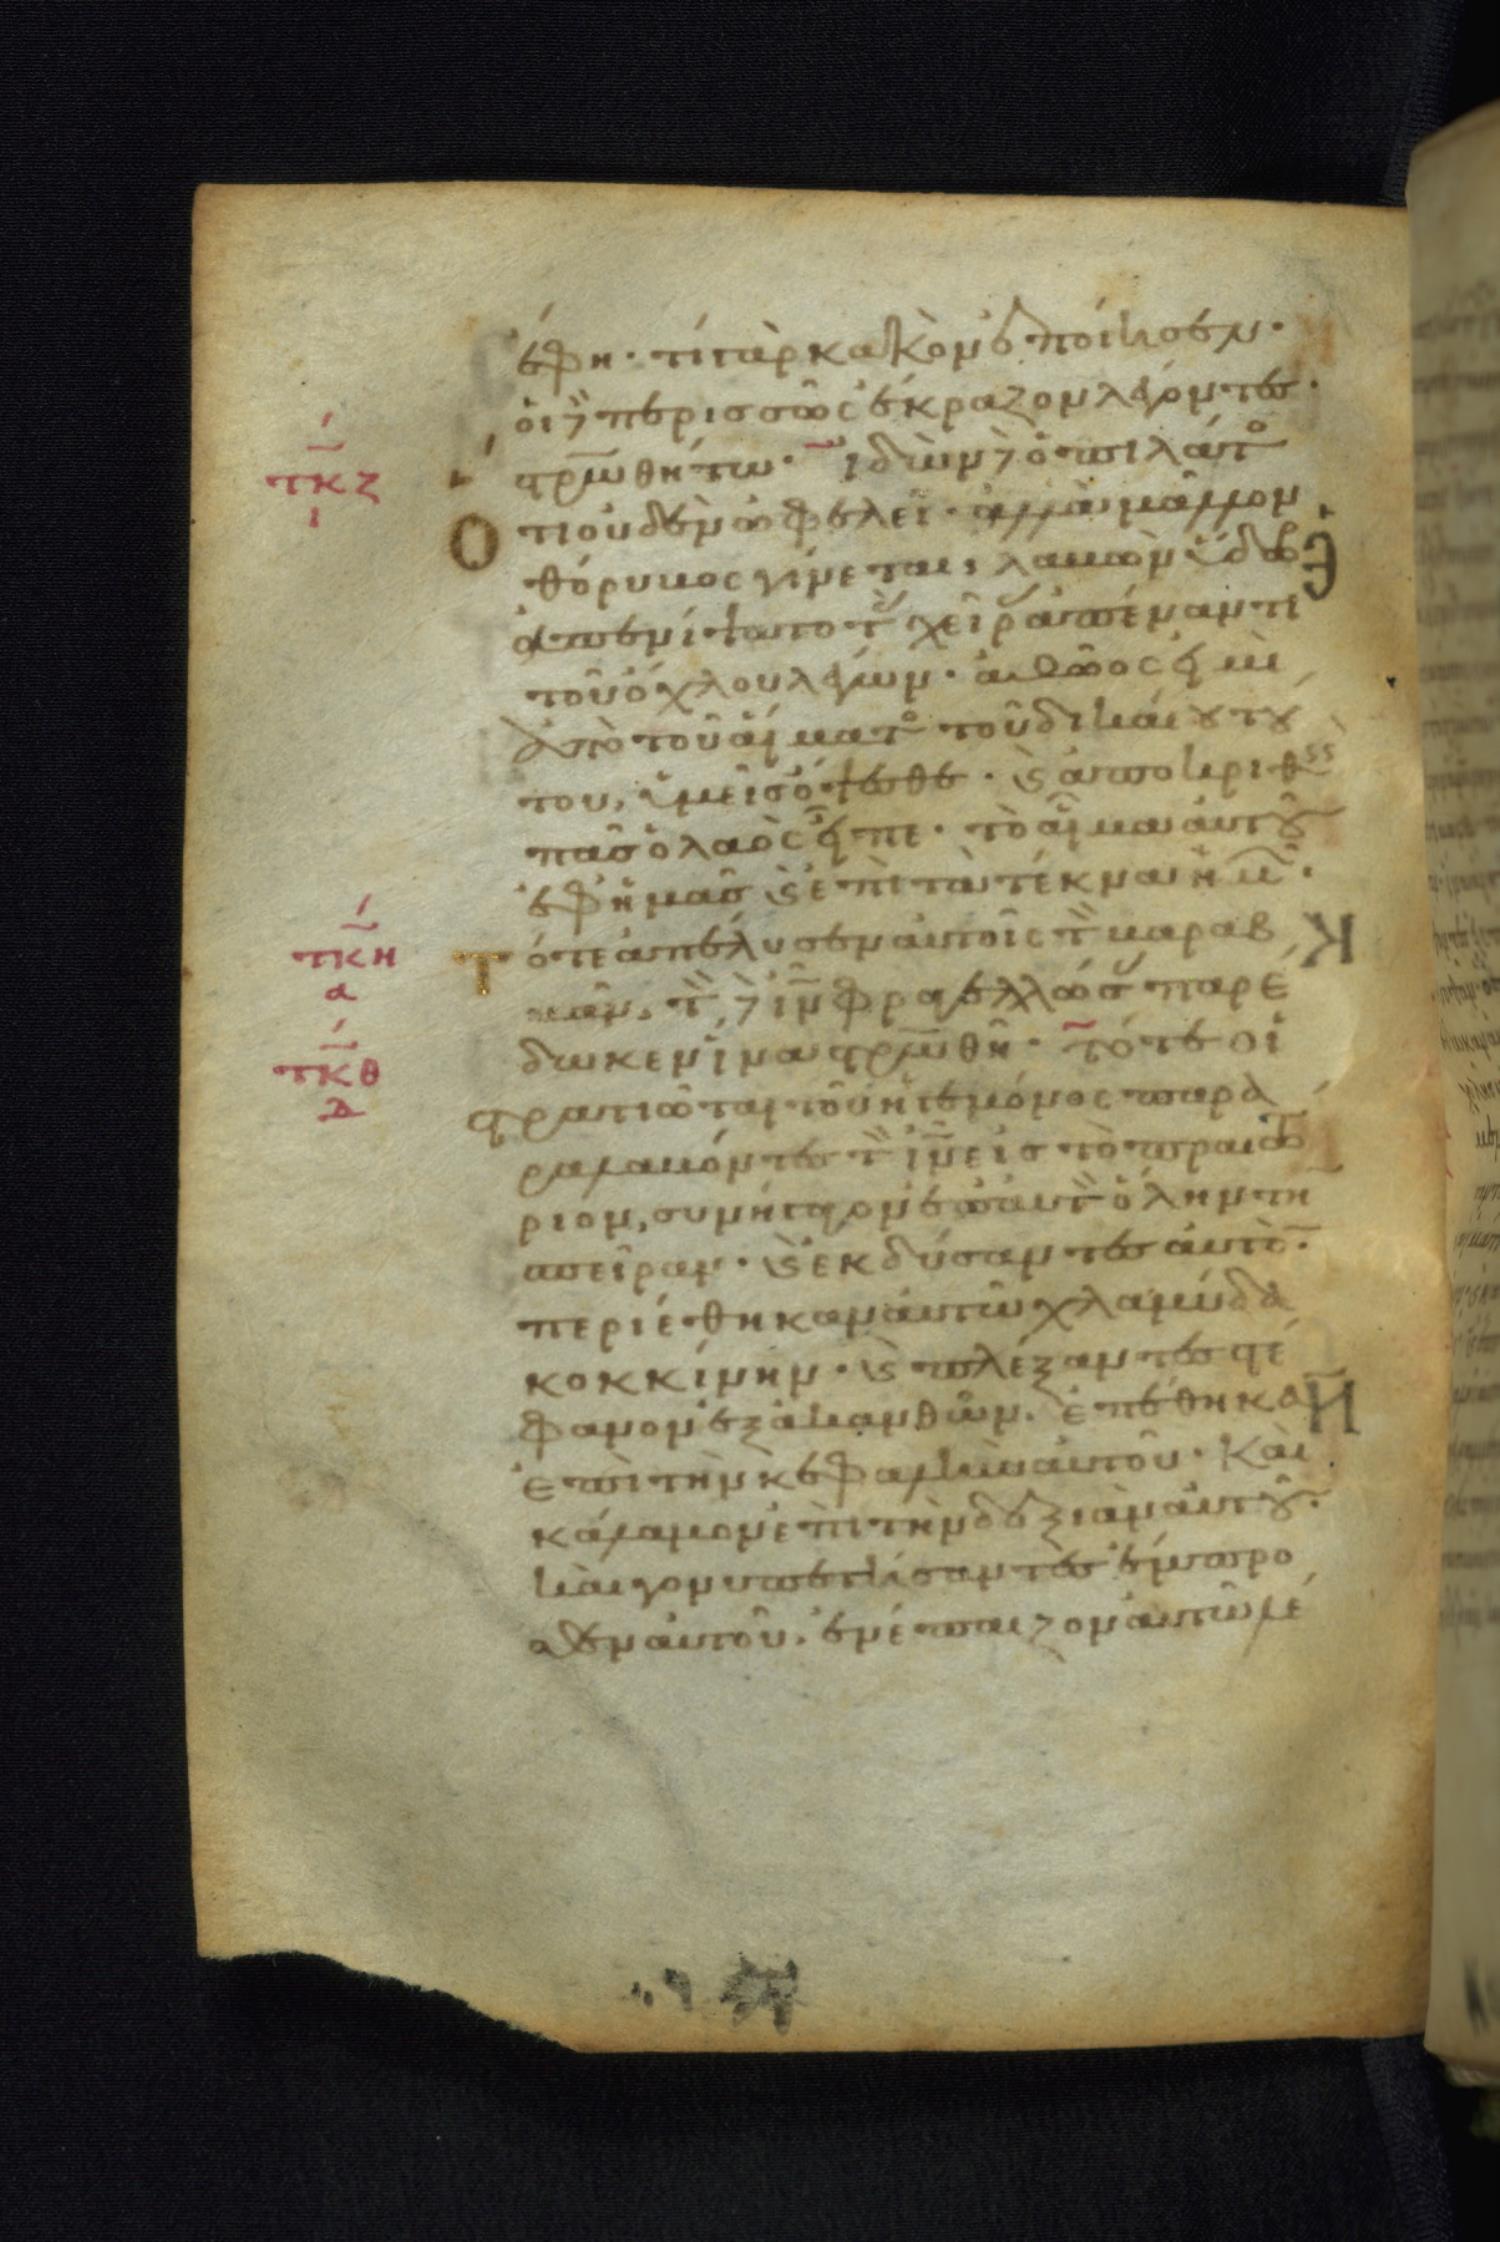 ἔφη· τί γὰρ κακὸν ἐποίησεν·
οἱ δὲ περισσῶς ἔκραζον λέγοντες·
τκζ στρωθήτω· ἰδὼν δὲ ὁ πιλάτος
ι Ὅτι οὐδὲν ὠφελεῖ· ἀλλὰ μᾶλλον
θόρυβος γίνεται, λαβὼν ὕδωρ
ἀπενίψατο τὰς χεῖρας ἀπέναντι
τοῦ ὄχλου λέγων· ἀθῶός εἰμι
ἀπὸ τοῦ αἵματος τοῦ δικαίου τού
του, ὑμεῖς ὄψεσθε· καὶ ἀποκριθεὶς
πᾶς ὁ λαὸς εἶπε· τὸ αἷμα αὐτοῦ
ἐφ' ἡμᾶς καὶ ἐπὶ τὰ τέκνα ἡμῶν·
τκη α Τότε ἀπέλυσεν αὐτοῖς τὸν βαραβ
βᾶν, τὸν δὲ ιν φραγελλώσας παρέ
τκθ δ δωκεν ἵνα στρωθῆ· τότε οἱ
στρατιῶται τοῦ ἡγεμόνος παρα
λαβόντες τὸν ιν εἰς τὸ πραιτώ
ριον, συνήγαγον ἐπ' αὐτὸν ὅλην τὴν
σπεῖραν· καὶ ἐκδύσαντες αὐτὸν·
περιέθηκαν αὐτῶ χλαμύδα
κοκκίνην· καὶ πλέξαντες στέ
φανον ἐξ ἀκανθῶν, ἐπέθηκαν
ἐπὶ τὴν κεφαλὴν αὐτοῦ· καὶ
κάλαμον ἐπὶ τὴν δεξιὰν αὐτοῦ·
καὶ γονυπετήσαντες ἔμπρο
σθεν αὐτοῦ, ἐνέπαιζον αὐτῶ λέ